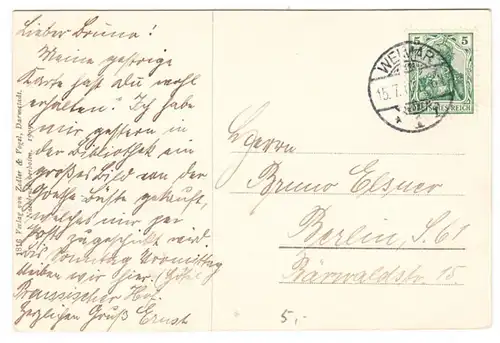 Lieber Bruno!
Meine gestrige
Karte hast du wohl
erhalten. Ich habe
mir gestern in
der Bibliothek ein
großes Bild von der
Goethe Büste gekauft,
welches mir per
Post zugeschickt wird.
Bis Sonntag Vormittag
bleiben wir hier. (Hôtel
Preussischer Hof.
Herzlichen Gruß Ernst
1816 Verlag von Zedler & Vogel, Darmstadt.
5 5
WEIMAR
15.7.
DEUTSCHES REICH
Herrn
Bruno Elsner
Berlin, S. 61
Bärwaldstr. 15.
5.-